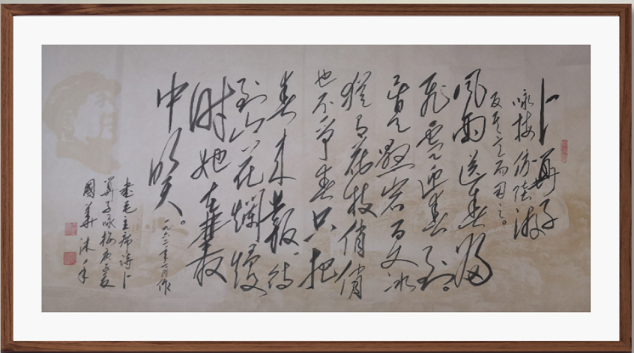 卜算子
咏梅 仿陆游
反其意而用之。
风雨送春归
飞雪迎春到。
已是悬崖百丈冰
犹有花枝俏俏
也不争春只把
春来报待
到山花烂熳
时她在丛
中笑。
一九六二年一月作
书毛主席诗卜
算子咏梅
国华沐手